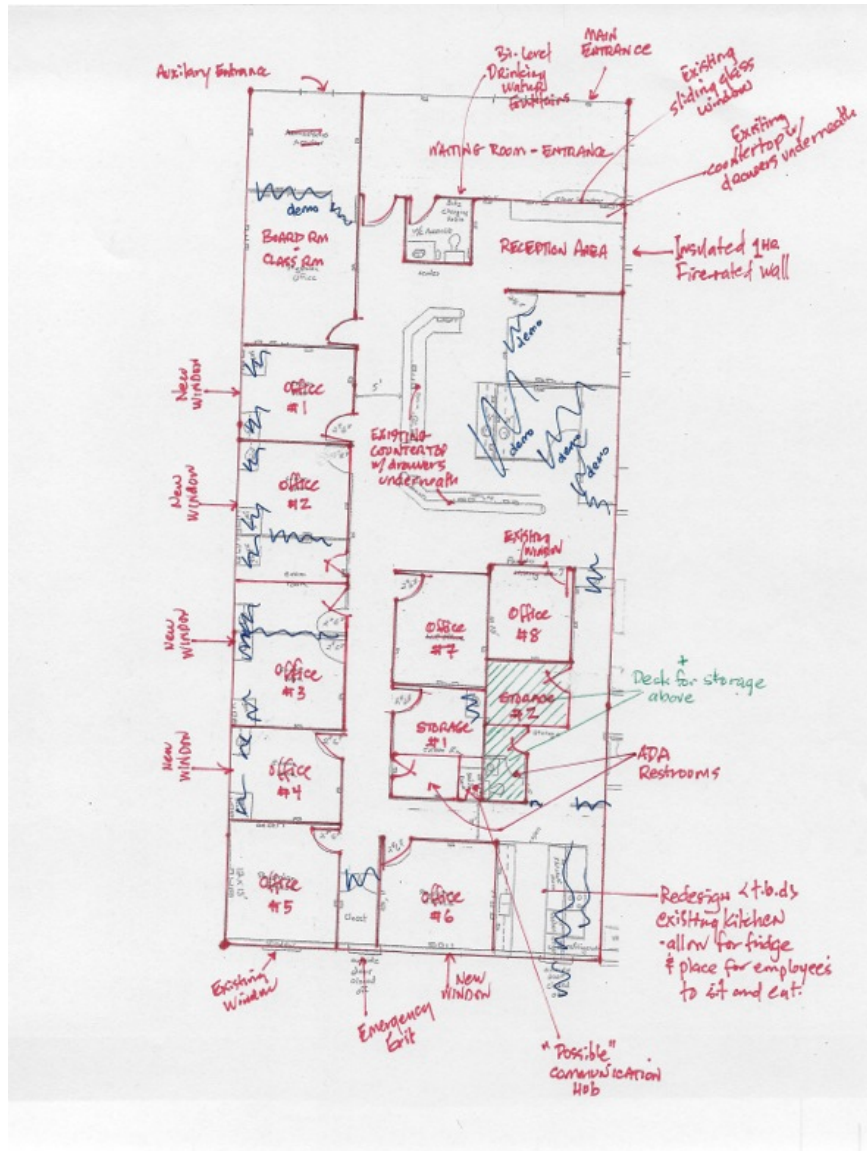 MAIN
ENTRANCE
Bi-Level
Drinking
Water
Fountains
Auxilary Entrance
Existing
sliding glass
window
Existing
countertop w/
drawers underneath
WAITING ROOM - ENTRANCE
demo
BOARD RM
CLASS RM
OFFICE
RECEPTION AREA
Insulated 1HR
Fire rated Wall
demo
New
WINDOW
Office
#1
5'
EXISTING
COUNTERTOP
w/ drawers
underneath
demo
demo
demo
New
WINDOW
Office
#2
EXISTING
WINDOW
New
WINDOW
Office
#3
Office
#7
Office
#8
STORAGE
#2
Deck for storage
above
STORAGE
#1
New
WINDOW
Office
#4
ADA
Restrooms
Office
#5
Closet
Office
#6
Redesign <t.b.d>
existing kitchen
-allow for fridge
& place for employees
to sit and eat.
Existing
Window
Emergency
Exit
New
WINDOW
"Possible"
COMMUNICATION
HUB